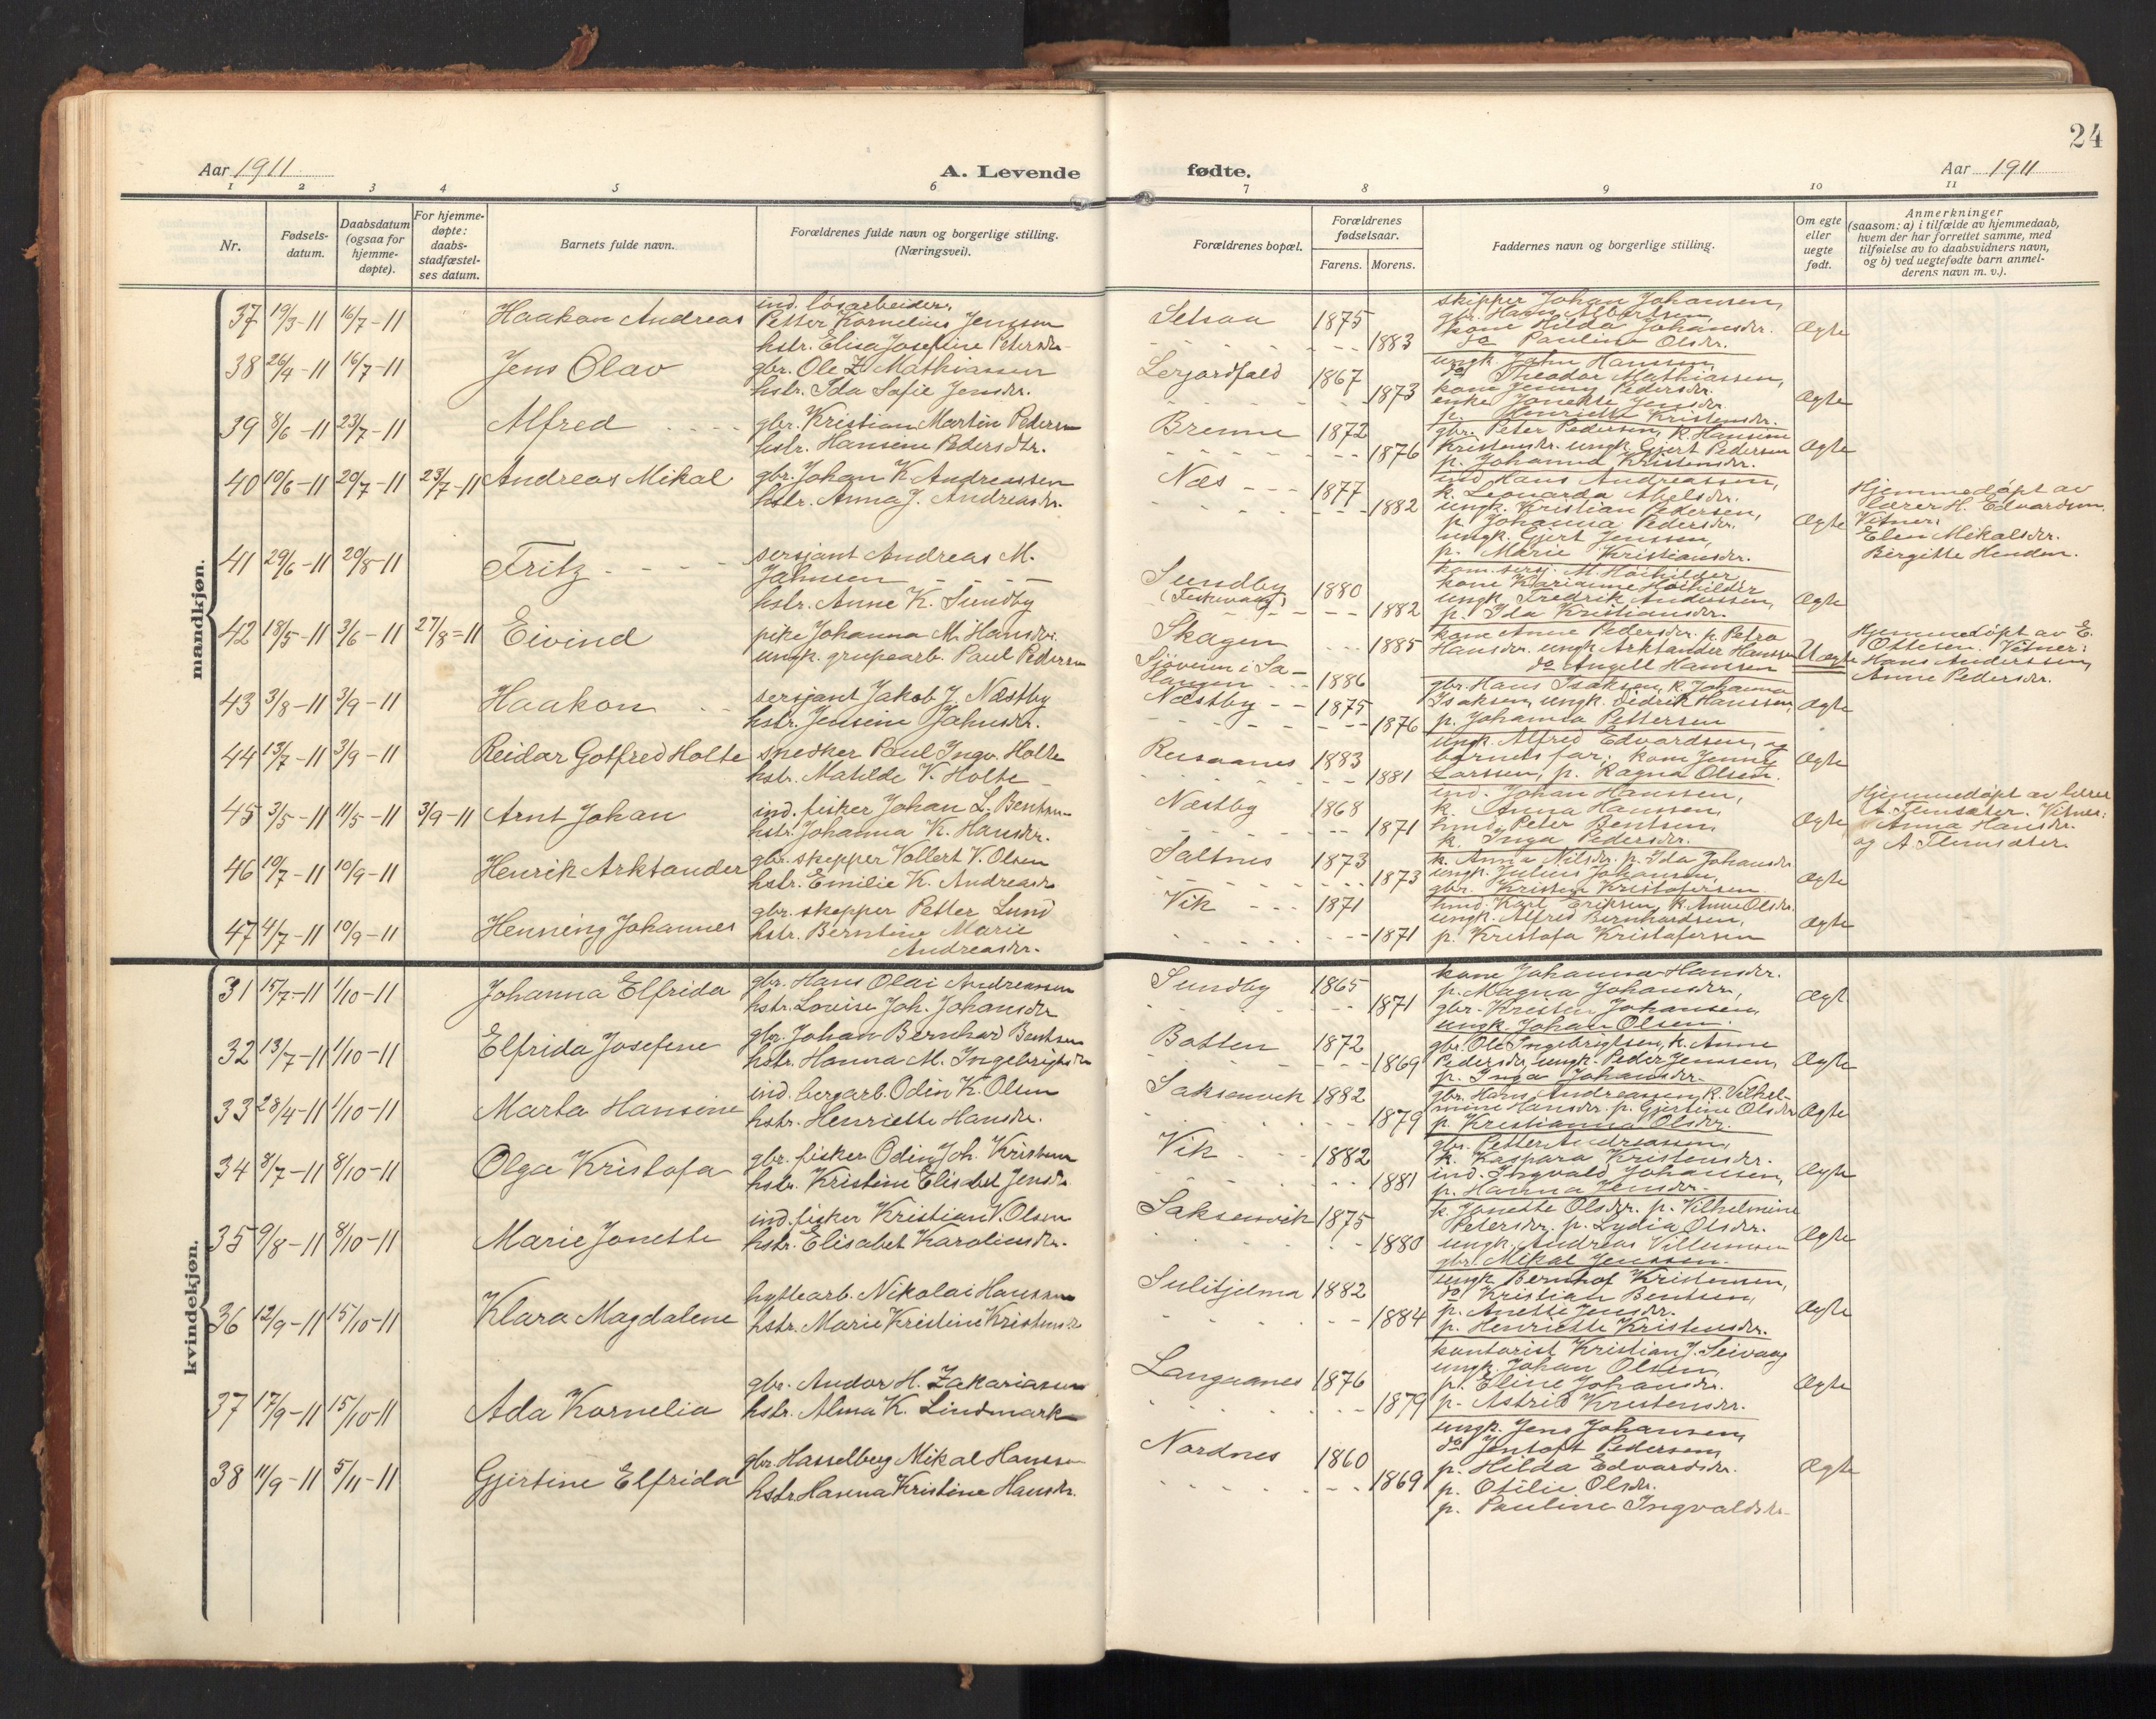 24
Aar 1911
A. Levende
fødte.
Aar 1911
1 2 3 4 5 6 7 8 9 10 11
Nr.
Fødsels-
datum.
Daabsdatum
(ogsaa for
hjemme-
døpte).
For hjemme-
døpte:
daabs-
stadfæstel-
ses datum.
Barnets fulde navn.
Forældrenes fulde navn og borgerlige stilling.
(Næringsvei).
Forældrenes bopæl.
Forældrenes
fødselsaar.
Farens. Morens.
Faddernes navn og borgerlige stilling.
Om egte
eller
uegte
født.
Anmerkninger
(saasom: a) i tilfælde av hjemmedaab,
hvem der har forrettet samme, med
tilføielse av to daabsvidners navn,
og b) ved uegtefødte barn anmel-
derens navn m. v.).
mandkjøn.
37 19/3-11 16/7-11 Haakon Andreas
ind. løsarbeider,
Petter Kornelius Jenssen
hstr. Elisa Josefine Petersdr.
Setsaa 1875
1883
skipper Johan Johansen,
gbr. Hans Albertsen,
kone Hilda Johansdr.
do Pauline Olsdr.
Ægte
38 26/4-11 16/7-11 Jens Olav
gbr. Ole Z. Mathiassen
hstr. Ida Sofie Jensdr.
Lerjordfald 1867
1873
ungk. John Hanssen,
do Theodor Mathiassen,
kone Jenny Pedersdr.
enke Jonette Jensdr.
p. Henriette Kristensdr.
Ægte
39 8/6-11 23/7-11 Alfred
gbr. Kristian Martin Pedersen
hstr. Hansine Pedersdtr.
Brenne 1872
1876
gbr. Peter Pedersen, k. Hansine
Kristensdr. ungk. Gjert Pedersen
p. Johanna Kristensdr.
Ægte
40 10/6-11 20/7-11 23/7-11 Andreas Mikal
gbr. Johan K. Andreassen
hstr. Anna J. Andreasdr.
Næs 1877
1882
ind. Hans Andreassen,
k. Leonarda Abelsdr.
ungk. Kristian Pedersen,
p. Johanna Pedersdr.
ungk. Gjert Jenssen,
p. Marie Kristiansdr.
Ægte
Hjemmedøpt av
lærer H. Edvardsen.
Vitner:
Elen Mikalsdr.
Birgitte Henden.
41 29/6-11 20/8-11 Fritz
sersjant Andreas M.
Jahnsen
hstr. Anne K. Sundby
Sundby 1880
1882
kom.sersj. M. Høihilder
kone Karianne Høihilder
ungk. Fredrik Anderssen,
p. Ida Kristiansdr.
Ægte
42 18/5-11 3/6-11 27/8-11 Eivind
pike Johanna M. Hansdr.
ungk. grubearb. Paul Pedersen
Skagen 1885
Sjøveien i Sa-
1886
kone Anne Pedersdr. p. Petra
Hansdr. ungk. Arktander Hanssen
do Angell Hanssen
Uægte
Hjemmedøpt av E.
Ottesen. Vitner:
Hans Anderssen,
Anne Pedersdr.
43 3/8-11 3/9-11 Haakon
sersjant Jakob J. Næstby
hstr. Jensine Jahnsdr.
Næstby 1875
1876
gbr. Hans Isaksen, k. Johanna
Isaksen, ungk. Didrik Hanssen,
p. Johanna Pettersen
Ægte
44 13/7-11 3/9-11 Reidar Gotfred Holte
snedker Paul Ingv. Holte
hstr. Matilde V. Holte
Rusaanes 1883
1881
ungk. Alfred Edvardsen, og
barnets far; kone Jenny
Larssen, p. Ragna Olsen.
Ægte
45 3/5-11 11/5-11 3/9-11 Arnt Johan
ind. fisker Johan L. Bentsen
hstr. Johanna K. Hansdr.
Næstby 1868
1871
ind. Johan Hanssen,
k. Anna Hanssen,
hmd. Peter Bentsen,
k. Inga Pedersdr.
Ægte
Hjemmedøpt av lærer
A. Flemsæter. Vitner:
Anna Hansdr.
og A. Flemsæter.
46 10/7-11 10/9-11 Henrik Arktander
gbr. skipper Vollert V. Olsen
hstr. Emilie K. Andreasdr.
Saltnes 1873
1873
k. Anna Nilsdr. p. Ida Johansdr.
ungk. Julius Johansen,
gbr. Kristen Kristofersen
Ægte
47 4/7-11 10/9-11 Henning Johannes
gbr. skipper Petter Lund
hstr. Berntine Marie
Andreasdr.
Vik 1871
1871
hmd. Karl Eriksen, k. Anne Olsdr.
ungk. Alfred Bernhardsen,
p. Kristofa Kristofersen
Ægte
kvindekjøn.
31 15/7-11 1/10-11 Johanna Elfrida
gbr. Hans Olai Andreassen
hstr. Lovise Joh. Johansdr
Sundby 1865
1871
kone Johanna Hansdr.
p. Magna Johansdr.,
gbr. Kristen Johansen,
ungk. Johan Olsen.
Ægt.
32 13/7-11 1/10-11 Elfrida Josefine
gbr. Johan Bernhard Bentsen
hstr. Hanna M. Ingebrigtsdr
Botten 1872
1869
gbr. Ole Ingebrigtsen, k. Anne
Pedersdr. ungk. Peder Jenssen,
p. Inga Johansdr.
Ægte
33 28/4-11 1/10-11 Marta Hansine
ind. bergarb. Odin K. Olsen
hstr. Henriette Hansdr.
Saksenvik 1882
1879
gbr. Hans Andreassen, k. Vilhel-
mine Hansdr. p. Gjertine Olsdr.
p. Kristianna Olsdr.
Ægte
34 8/7-11 8/10-11 Olga Kristofa
gbr. fisker Odin Joh. Kristensen
hstr. Kristine Elisabet Jensdr
Vik 1882
1881
gbr. Petter Andreassen,
k. Kaspara Kristensdr.
ind. Ingvald Johansen,
p. Hanna Jensdr.
Ægte
35 9/8-11 8/10-11 Marie Jonette
ind. fisker Kristian V. Olsen
hstr. Elisabet Karoliusdr.
Saksenvik 1875
1880
k. Jonette Olsdr. p. Vilhelmine
Petersdr. p. Lydia Olsdr.
ungk. Andreas Villumsen
gbr. Mikal Jenssen.
Ægte
36 12/9-11 15/10-11 Klara Magdalene
hyttearb. Nikolai Hanssen
hstr. Marie Kristine Kristensdr
Sulitjelma 1882
1884
ungk. Bernhof Kristensen,
do Kristian Bentsen,
p. Anette Jensdr.
p. Henriette Kristensdr.
Ægte
37 17/9-11 15/10-11 Ada Kornelia
gbr. Andor H. Zakariassen
hstr. Alma K. Lindmark
Langaanes 1876
1879
kontorist Kristian J. Seivaag
ungk. Johan Olsen,
p. Eline Johansdr.
p. Astrid Kristensdr.
Ægte
38 11/9-11 5/11-11 Gjertine Elfrida
gbr. Hasselberg Mikal Hanssen
hstr. Hanna Kristine Hansdr.
Nordnes 1860
1869
ungk. Jens Johansen,
do Jentoft Pedersen,
p. Hilda Edvardsdr.
p. Otilie Olsdr.
p. Pauline Ingvaldsdr.
Ægte